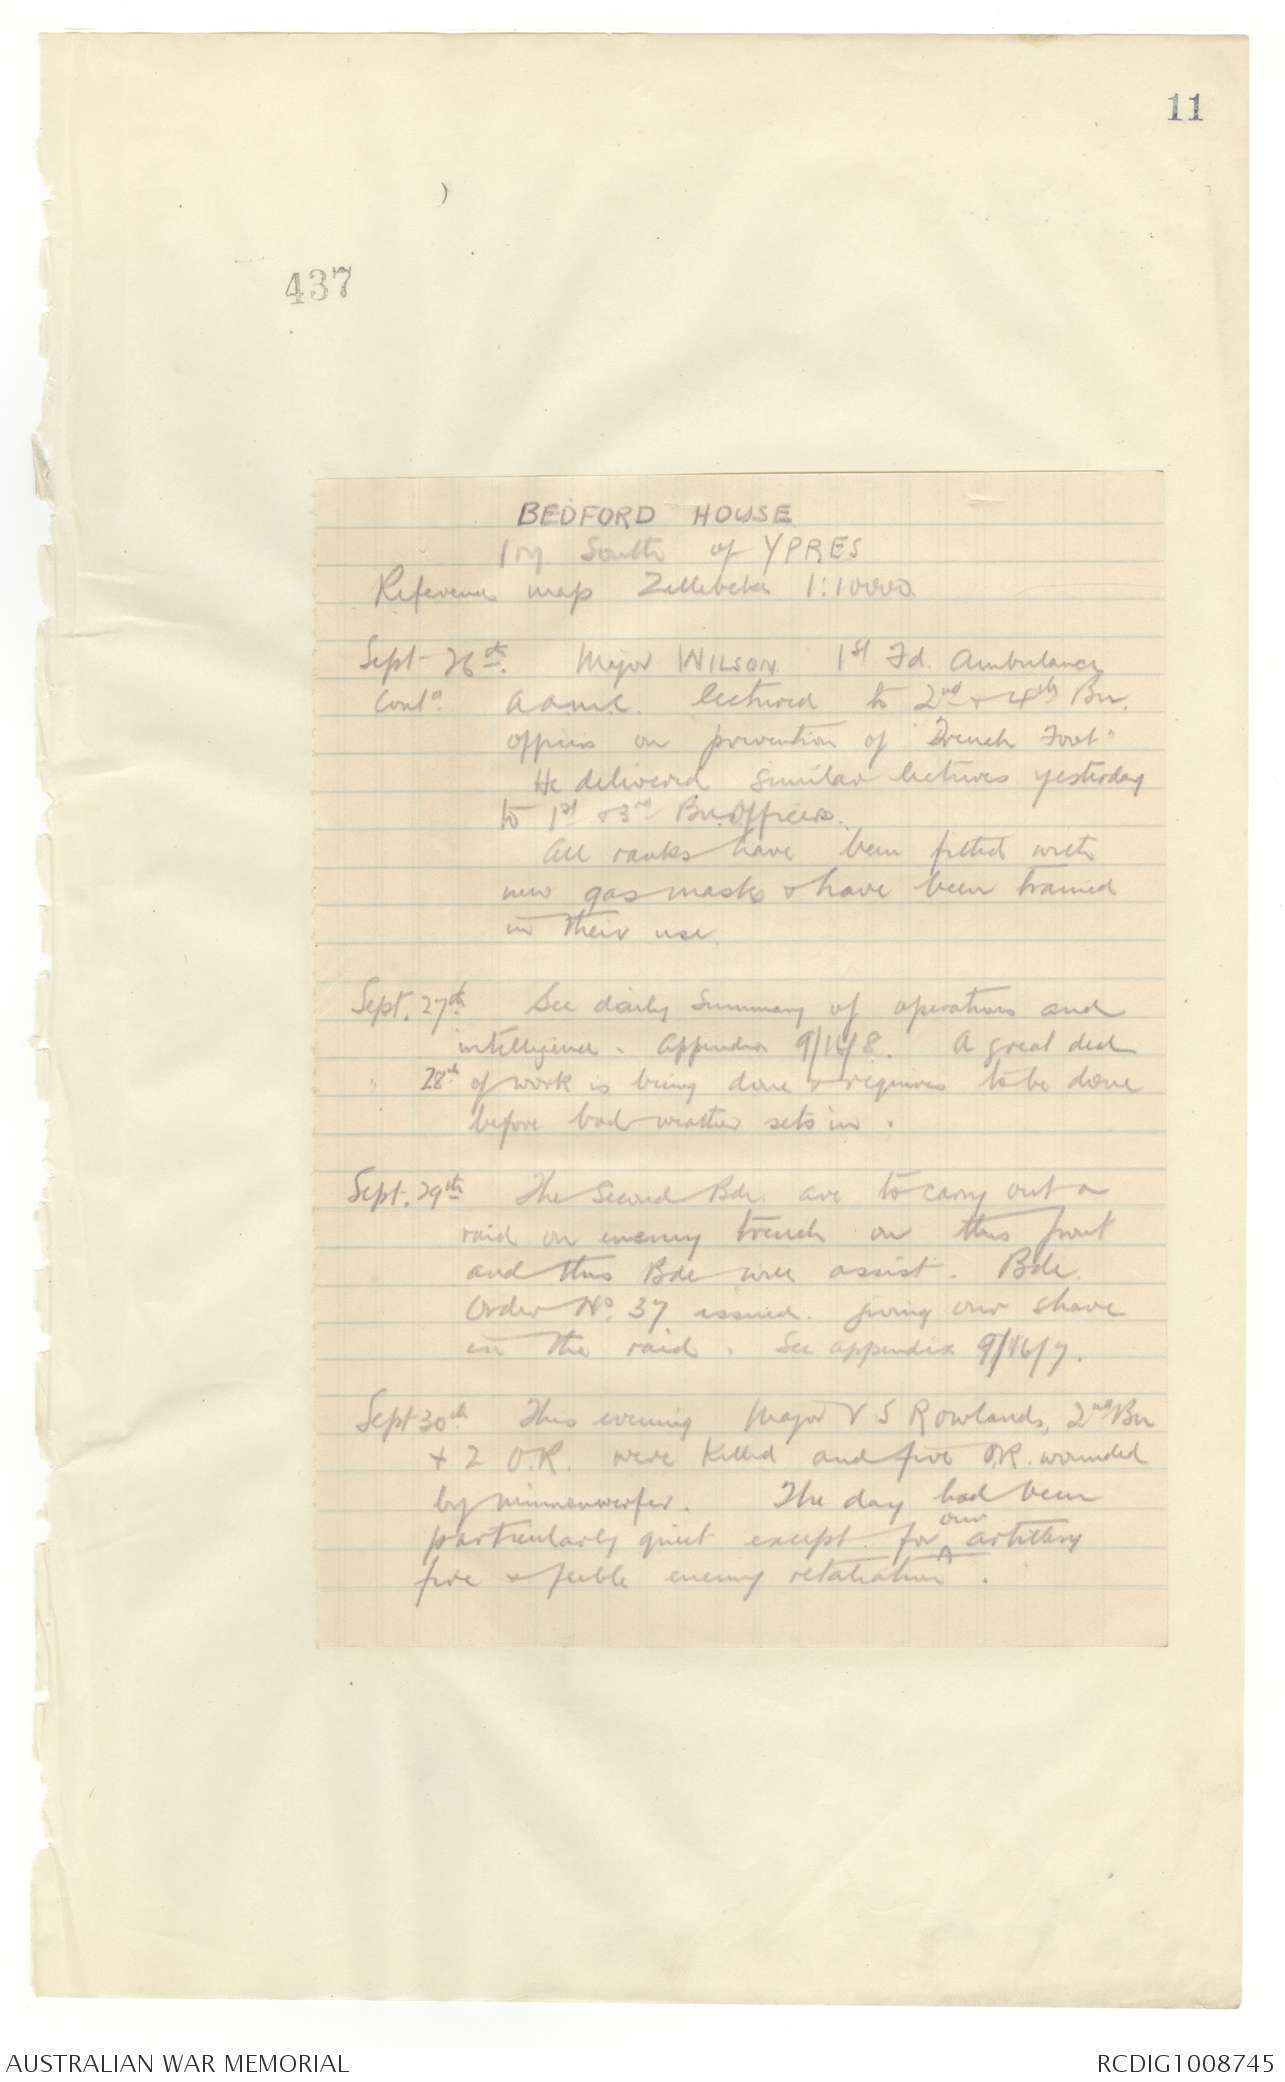 11
437
BEDFORD HOUSE
1 m South of YPRES
Reference map Zillebeke 1:10000
Sept 26th. Major WILSON 1st Fd. Ambulance
Contd. A.A.M.C. lectured to 2nd & 4th Bn.
Officers on prevention of "Trench Foot"
He delivered similar lectures yesterday
to 1st & 3rd Bn. Officers.
All ranks have been fitted with
new gas masks & have been trained
in their use.
Sept. 27th See daily summary of operations and
intelligence. Appendix 9/16/8. A great deal
" 28th of work is being done & requires to be done
before bad weather sets in.
Sept. 29th The Second Bde. are to carry out a
raid on enemy trench on this front
and this Bde will assist. Bde.
Order No. 37 issued. giving our share
in the raid. See appendix 9/16/7.
Sept 30th This evening Major V S Rowlands, 2nd Bn
& 2 O.R. were killed and five O.R. wounded
by minnenwerfer. The day had been
particularly quiet except for our artillery
fire & feeble enemy retaliation.
AUSTRALIAN WAR MEMORIAL
RCDIG1008745